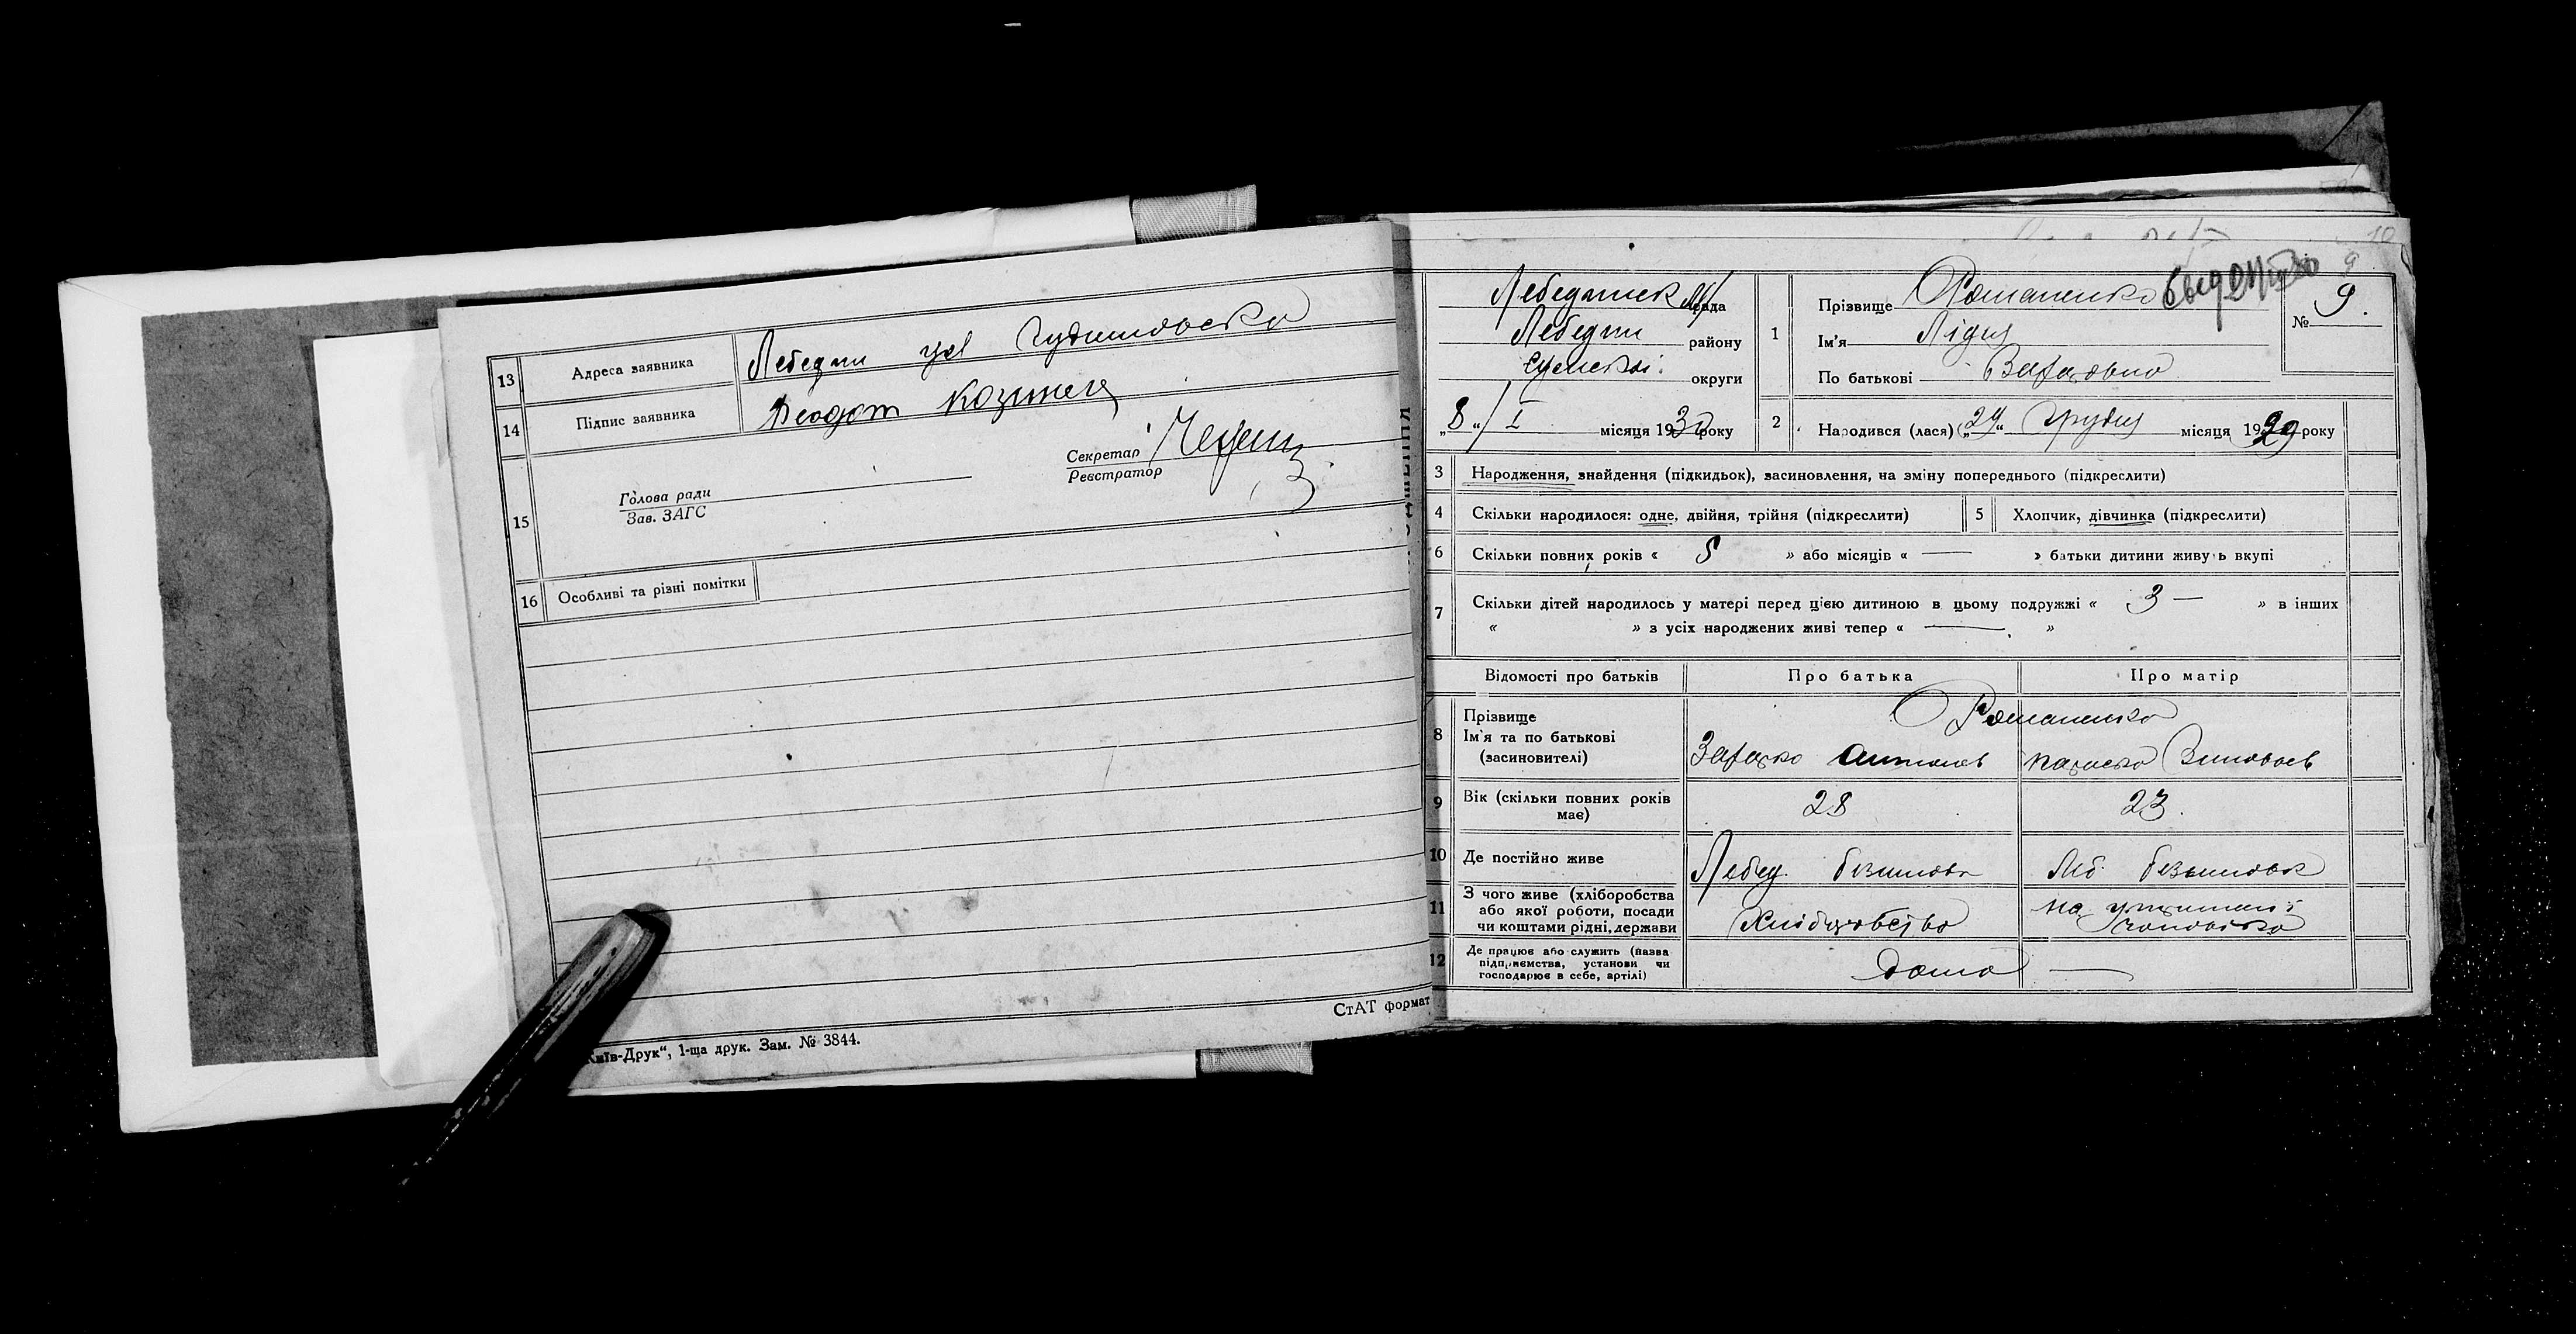 13 Адреса заявника Лебедин ул
14 Підпис заявника Феодот
15 Голова ради
Зав. ЗАГС
Секретар
Реєстратор
16 Особливі та різні помітки
СтАТ формат
Київ-Друк“, 1-ща друк. Зам. № 3844.
9
Лебединск рада
Лебедин району
Сумської округи
„8“ I місяця 1930 року
1 Прізвище Романенко
Ім'я Лідия
По батькові
№ 9.
2 Народився (лася) „29“ Грудня місяця 1929 року
3 Народження, знайдення (підкидьок), засиновлення, на зміну попереднього (підкреслити)
4 Скільки народилося: одне, двійня, трійня (підкреслити) 5 Хлопчик, дівчинка (підкреслити)
6 Скільки повних років « 5 » або місяців « — » батьки дитини живуть вкупі
7 Скільки дітей народилось у матері перед цією дитиною в цьому подружжі « 3 — » в інших
« » з усіх народжених живі тепер « — »
Відомості про батьків Про батька Про матір
8 Прізвище Романенко
Ім'я та по батькові
(засиновителі)
9 Вік (скільки повних років має) 28 23.
10 Де постійно живе Лебед. Леб.
11 З чого живе (хліборобства або якої роботи, посади чи коштами рідні, держави Хліборобство на
12 Де працює або служить (назва підприємства, установи чи господарює в себе, артілі) дома —